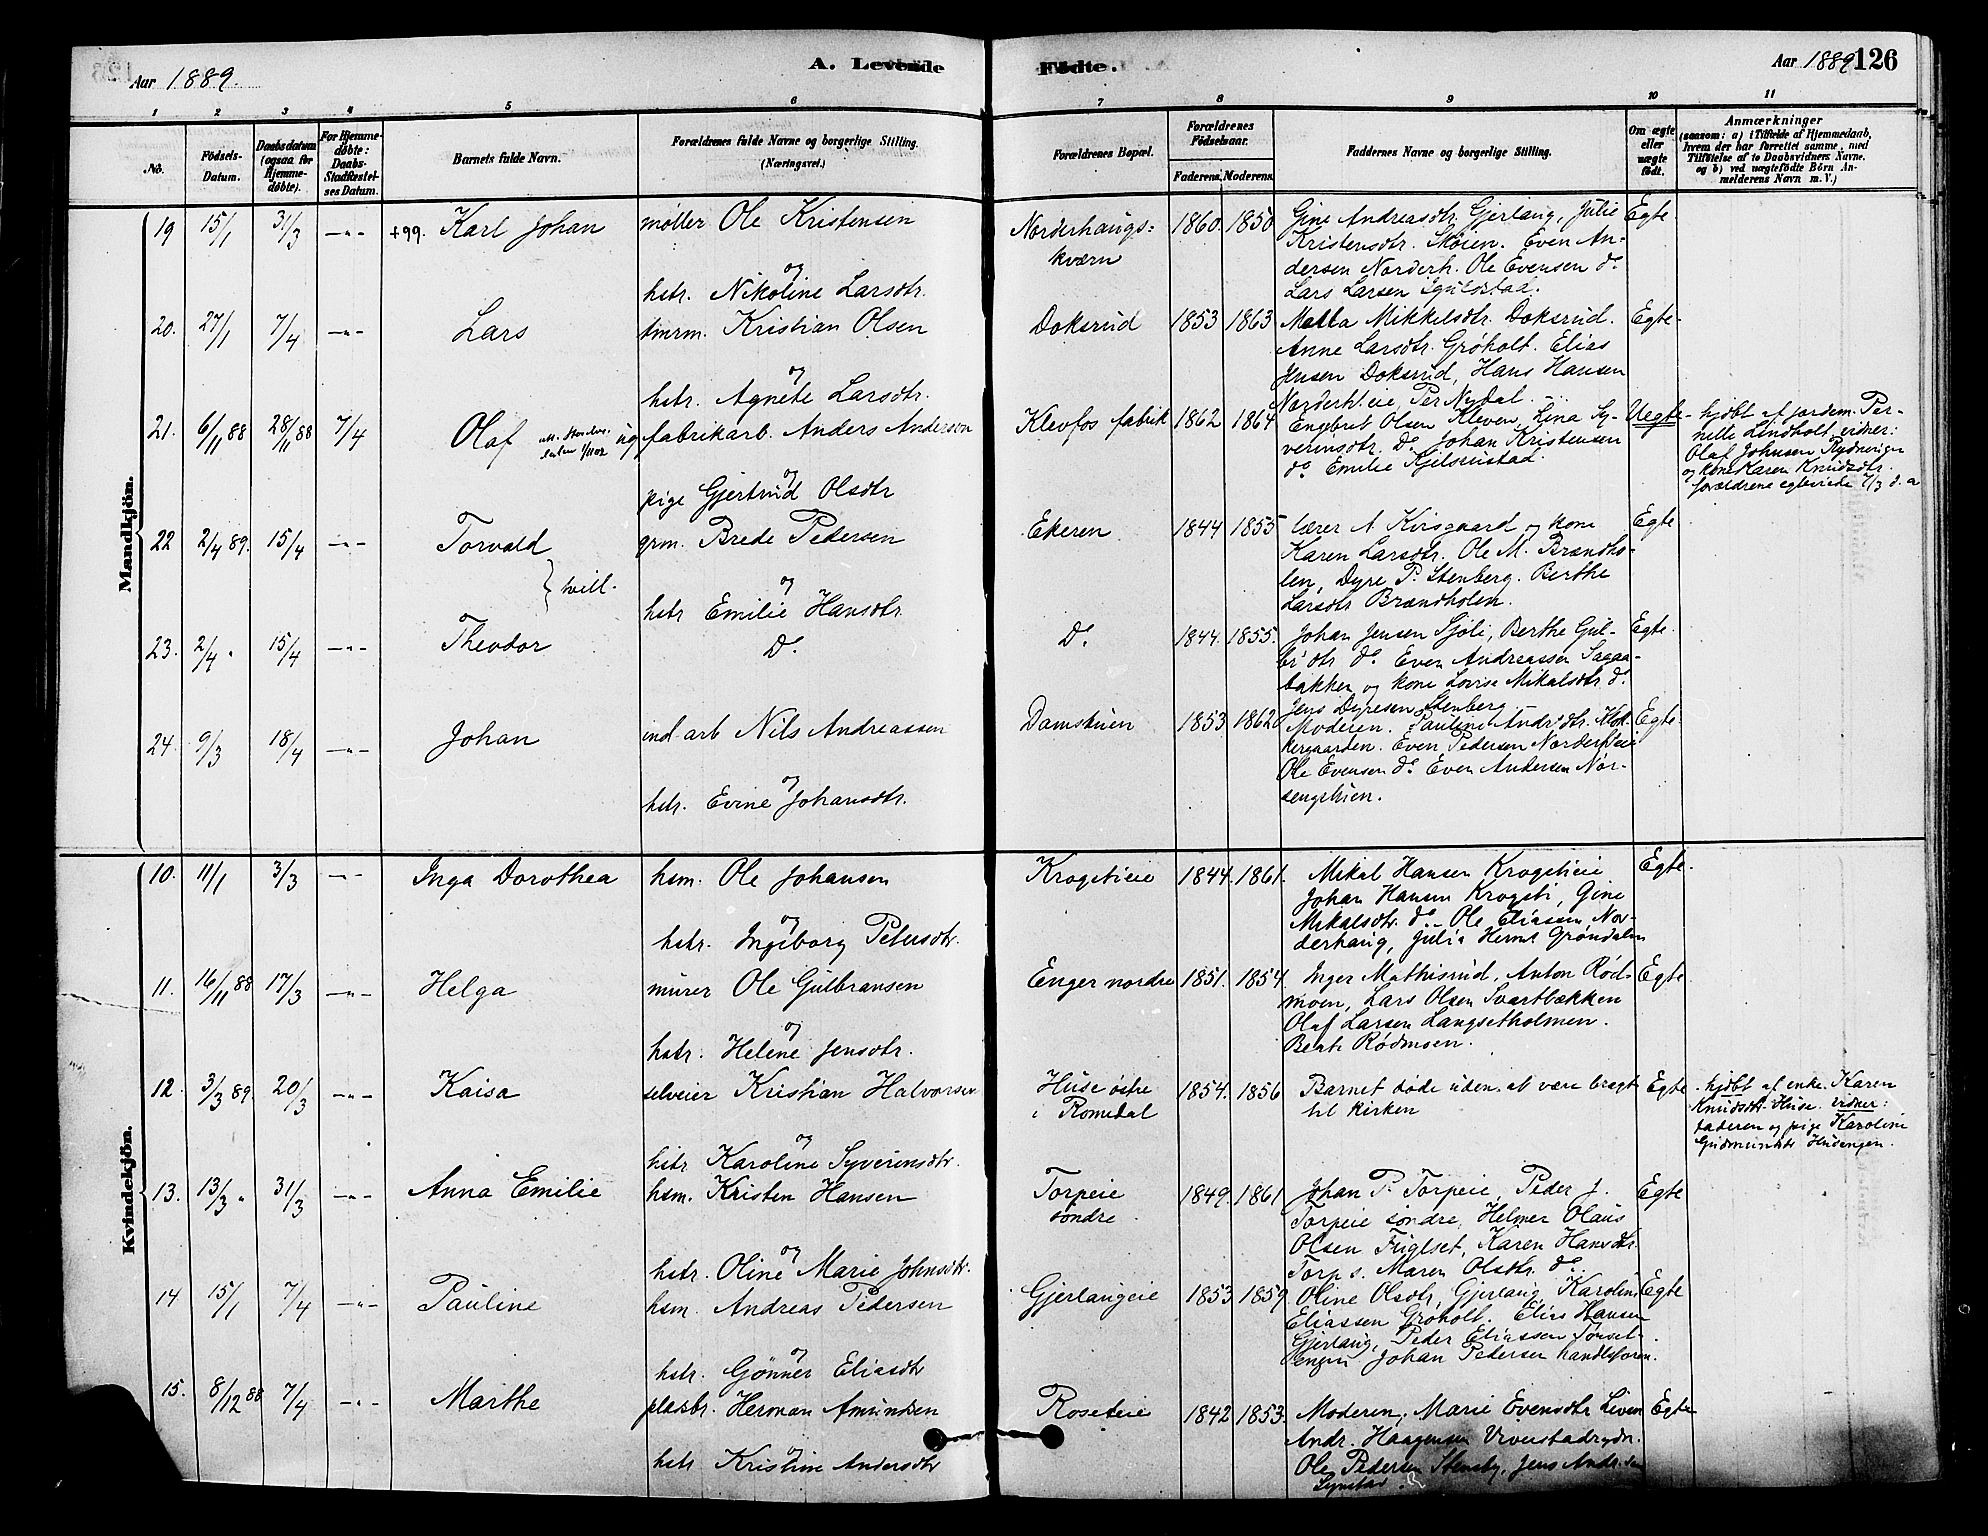 Aar 1889.
A. Levende
Fødte.
Aar 1889
126
1 2 3 4 5 6 7 8 9 10 11
No.
Fødsels-Datum.
Daabsdatum (ogsaa for Hjemmedøbte).
For Hjemmedøbte: Daabs-Stadfæstelses Datum.
Barnets fulde Navn.
Forældrenes fulde Navne og borgerlige Stilling. (Næringsvei.)
Forældrenes Bopæl.
Forældrenes Fødselsaar.
Faderens. Moderens.
Faddernes Navne og borgerlige Stilling.
Om ægte eller uægte født.
Anmærkninger
(saasom: a) i Tilfælde af Hjemmedaab, hvem der har forrettet samme, med Tilføielse af to Daabsvidners Navne, og b) ved uægtefødte Børn Anmelderens Navn m. V.)
Mandkjön.
19 15/1 31/3 -"- +99. Karl Johan møller Ole Kristensen
og
hstr. Nikoline Larsdtr.
Norderhaugs=
kværn
1860. 1850
Gine Andreasdtr. Gjerlaug, Julie
Kristensdtr. Skøien. Even An-
dersen Norderh. Ole Evensen do
Lars Larsen
Egte
20. 27/1 7/4 -"- Lars tmrm. Kristian Olsen
og
hstr. Agnete Larsdtr.
Doksrud 1853 1863
Matta Mikkelsdtr. Doksrud.
Anne Larsdtr. Grøholt. Elias
Jensen Doksrud, Hans Hansen
Norderhleie Per Nydal.
Egte
21. 6/11 88 28/11 88 7/4 Olaf ug fabrikarb. Anders Anderson
og
pige Gjertrud Olsdtr
Klevfos fabrik 1862 1864
Engebret Olsen Kleven, Lina Sy-
verinsdtr. do Johan Kristensen
do Emilie Kjelsrustad.
Uegte
hjdbt af jordem. Per-
nelle Lindholt vidner:
Olaf Johnsen
og kone Karen Knudsdtr.
forældrene egteviede 7/3 d. a
22 2/4 89. 15/4 -"- Torvald
} tvill.
grm. Brede Pedersen
og
hstr Emilie Hansdtr
Ekeren 1844 1855
lærer A. Kirsgaard og kone
Karen Larsdtr. Ole M. Brændho-
len, Dyre P. Stenberg. Berthe
Larsdtr Brændholen.
Egte
23. 2/4 " 15/4 -"- Theodor Do
Do 1844. 1855.
Johan Jensen Sjøli, Berthe Gul-
br dtr do Even Andreassen Sagaa-
bakken og kone Lovise Mikalsdtr do
Jens Dyresen Stenberg
Egte
24. 9/3 18/4 -"- Johan ind. arb Nils Andreassen
og
hstr. Evine Johansdtr.
Damstuen 1853 1862
Moderen. Pauline Andr dtr. Klok-
kergaarden. Even Pedersen Norderhleie
Ole Evensen do Even Andersen Nor-
sengstuen.
Egte
Kvindekjön.
10. 11/1 3/3 -"- Inga Dorothea hsm. Ole Johansen
og
hstr. Ingeborg Petersdtr.
Krogstieie 1844. 1861.
Mikal Hansen Krogstieie
Johan Hansen Krogsti, Gine
Mikalsdtr. do Ole Eliassen Nor-
derhaug, Julia Herms Grøndalen
Egte
11. 16/11 88 17/3 -"- Helga murer Ole Gulbransen
og
hstr. Helene Jensdtr.
Enger nordre 1851. 1854.
Inger Mathisrud, Anton Rød-
moen, Lars Olsen Svartbækken
Olaf Larsen Langsetholmen.
Berte Rødmoen.
Egte
12. 3/3 89. 20/3 -"- Kaisa selveier Kristian Halvorsen
og
hstr Karoline Syverinsdtr.
Huse østre
i Romedal
1854. 1856
Barnet døde uden at være bragt
til kirken
Egte
hjdbt af enke Karen
Knudsdtr Huse. vidner:
faderen og pige Karoline
Husengen.
13. 13/3 " 31/3 -"- Anna Emilie hsm. Kristen Hansen
og
hstr. Oline Marie Johnsdtr.
Torpeie
søndre.
1849. 1861
Johan P. Torpeie, Peder J.
Torpeie søndre, Helmer Olaus
Olsen Fuglset, Karen Hansdtr.
Torp s. Maren Olsdtr. do
Egte
14 15/1 7/4 -"- Pauline hsm. Andreas Pedersen
og
hstr. Gønner Eliasdtr
Gjerlaugeie 1853 1859
Oline Olsdtr, Gjerlaug, Karoline
Eliassen Grøholt. Elias Hansen
Gjerlaug, Peder Eliassen Tønset-
engen Johan Pedersen handlsforen.
Egte
15. 8/12 88 7/4 -"- Marthe pladsbr. Herman Amundsen
og
hstr Kristine Andersdtr
Roseteie 1842 1853.
Moderen, Marie Evensdtr Liven
Andr. Haagensen
Ole Pedersen Stensby, Jens
Egte